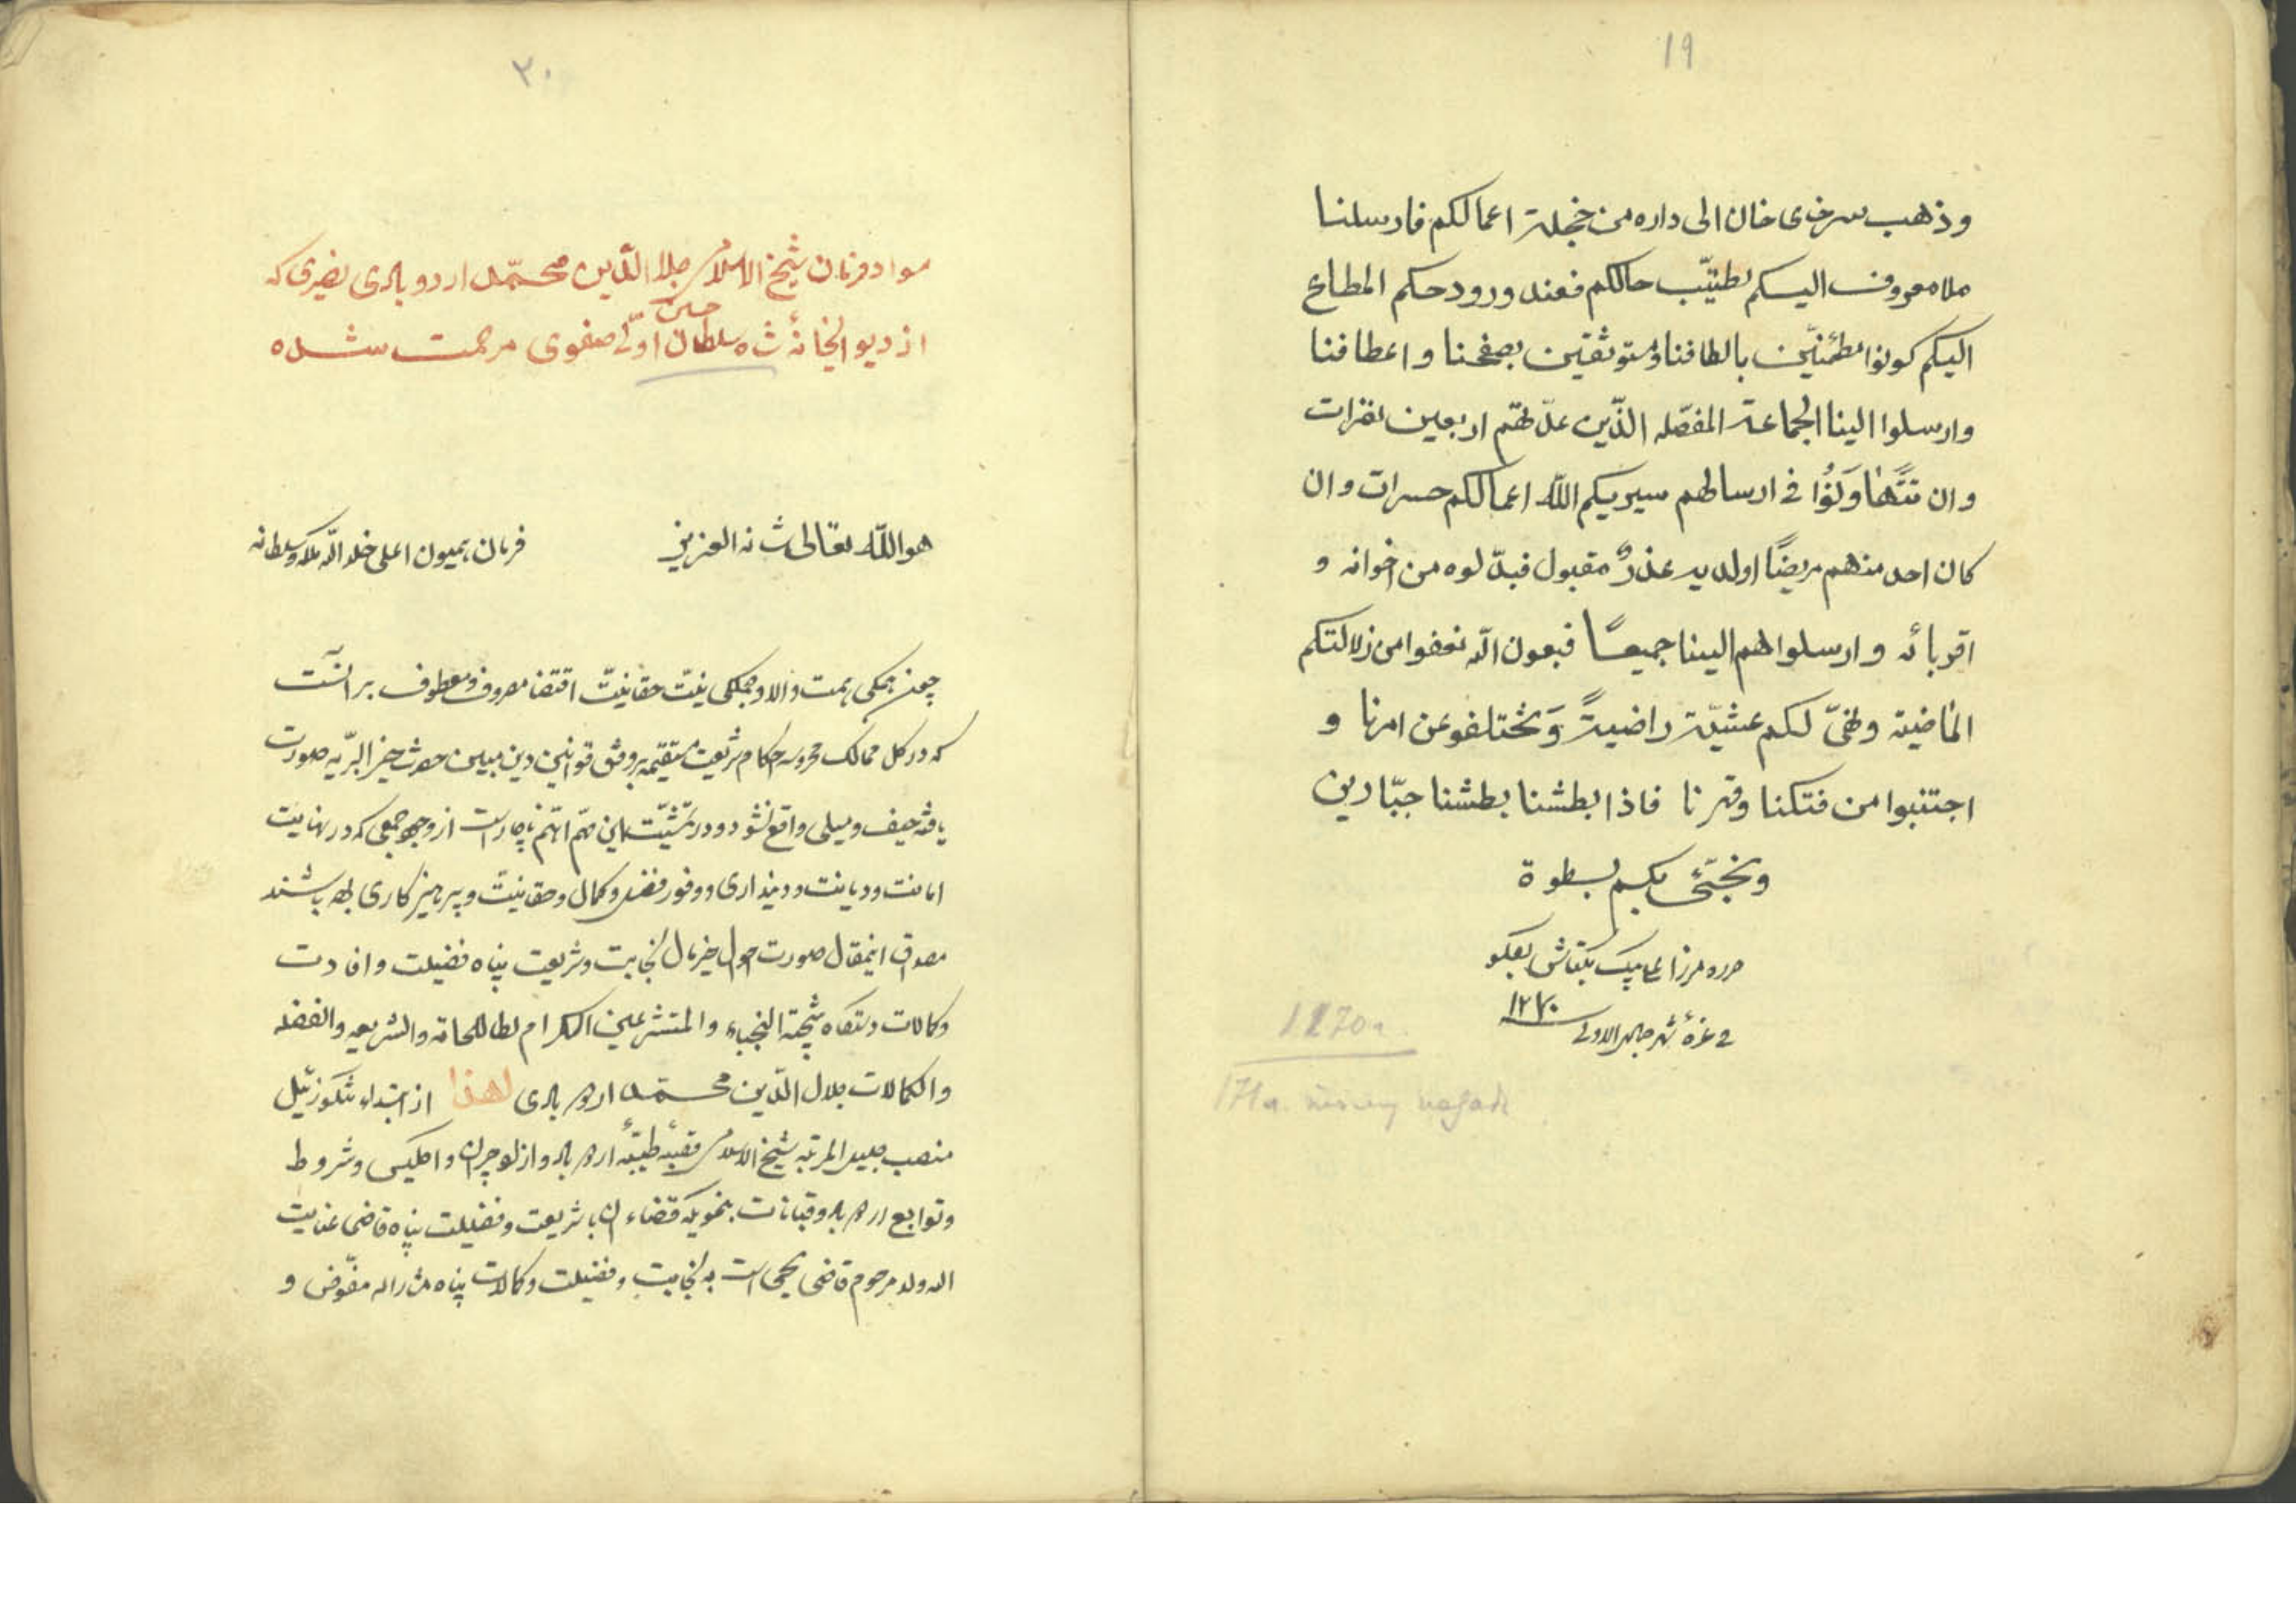 19
وذهب سرخای خان الی داره من خجلة اعمالکم فارسلنا
ملا معروف الیکم لطیّب حالکم فعند ورود حکم المطاع
الیکم کونوا مطمئنّین بالطافنا ومستوثقین بصفحنا و اعطافنا
وارسلوا الینا الجماعة المفصّله الذّین عدّتهم اربعین نفرات
وان تتهٰاوَنُوا فی ارسالهم سیریکم اللّه اعمالکم حسرات و ان
کان احد منهم مریضًا اولدیه عذرٌ مقبول فبدّلوه من اخوانه و
اقربائه و ارسلواهم الینا جمیعًا فبعون الله نعفوا من زلالتکم
الماضیة وتهیّ لکم عشیّة راضیةً وَ تختلفو عن امرنا و
اجتنبوا من فتکنا وقهرنا فاذا بطشنا بطشنا جبّارین
بکم بسطوة
حرره میرزا علی بیک
فی غرهٔ شهر جمادی الاولی ۱۲۷۰
1270
۲۰
مواد فرمان شیخ الاسلام جلال الدّین محمّد اردوبادی نصیری که
از دیوانخانهٔ شاه سلطان حسین اوّلی صفوی مرحمت شده
هو اللّه تعالی شانه العزیز
فرمان همیون اعلی خلد اللّه ملکه وسلطانه
چون همکی همت والا وجملکی نیّت حقانیّت اقتضا مصروف و معطوف بر آنست
که در کل ممالک محروسه احکام شریعت مستقیمه بروفق قوانین دین مبین حضرت خیر البرّیه صورت
یافته حیف و میلی واقع نشود ودر تمشیّت این مهّم اهّم ناچار است از وجود جمعی که در نهایت
امانت ودیانت ودینداری ووفور فضل وکمال وحقانیّت وپرهیزکاری بوده باشند
مصداق اینمقال صورت احوال خیرمال نجابت وشریعت پناه فضیلت وافادت
وکمالات دستگاه نتیجة النجباء والمتشرعین الکرام نظاما للنجابة والشریعه والفضله
والکمالات جلال الدّین محمّد اردوبادی لهذا از ابتداء تنکوزئیل
منصب جلیل المرتبه شیخ الاسلامی قصبهٔ طیّبهٔ اردوباد و
وتوابع اردوباد وقبانات بنحویکه قضاء آن با شریعت وفضیلت پناه قاضی عنایت
الله ولد مرحوم قاضی یحیی است به نجابت وفضیلت وکمالات پناه مشارالیه مفوّض و